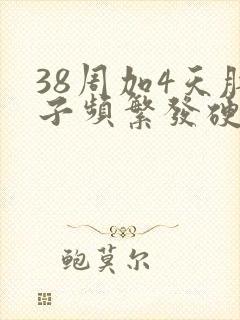 38周加4天肚
子頻繁發硬
鲍莫尔